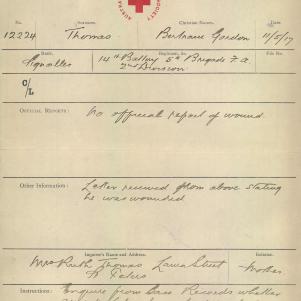 No. Surname. Christian Names. Date
12224 Thomas Bertrane Gordon 11/5/17
Rank. Regiment, &c. File No.
Signaller 14th Battery 5th Brigade F.A.
2nd Division
C/L
OFFICIAL REPORTS: No official report of wound.
Other Information: Letter received from above stating
he was wounded
Inquirer's Name and Address. Relation.
Mrs Ruth Thomas Street Mother
St Peters
Instructions: Enquire from Base Records whether